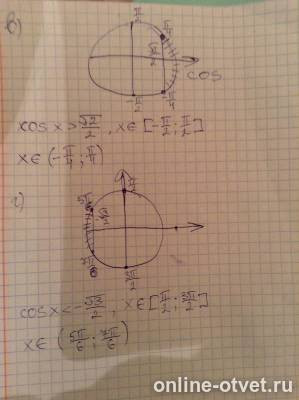 в)
π/2
π/4
√2/2
cos
-π/2
-π/4
cos x > √2/2, x∈ [-π/2; π/2]
x∈ (-π/4; π/4)
г)
π/2
5π/6
7π/6
3π/2
cos x < -√3/2, x∈ [π/2; 3π/2]
x∈ (5π/6; 7π/6)
online-otvet.ru